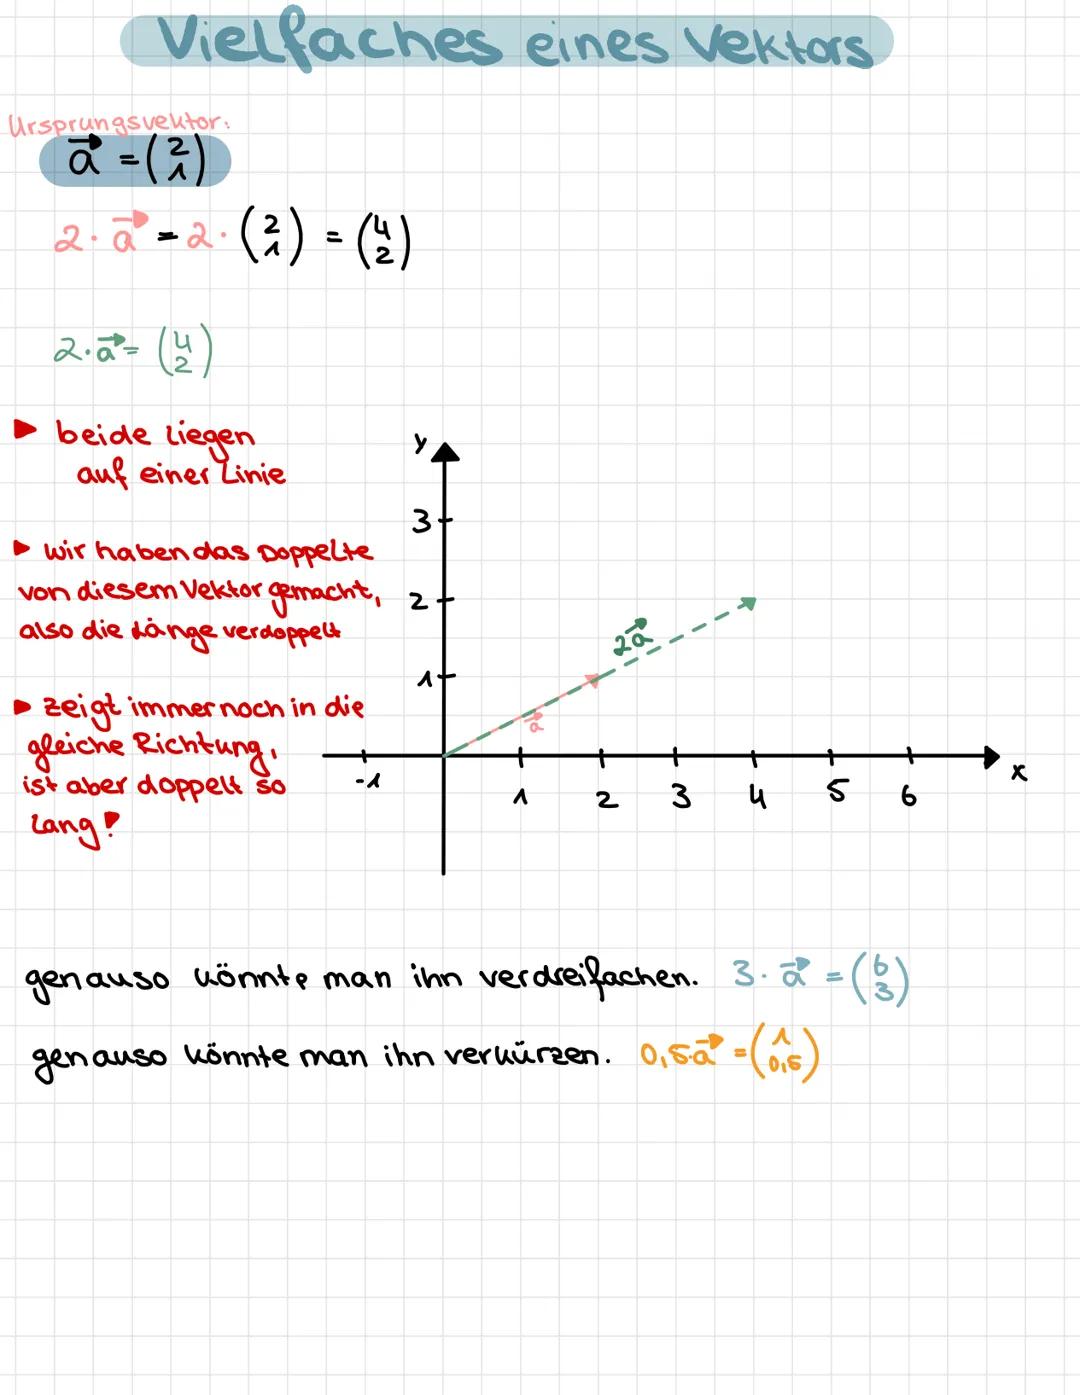 Vielfaches eines Vektors
Ursprungsvektor:
a⃗ = (2 1)
2 · a⃗ = 2 · (2 1) = (4 2)
2 · a⃗ = (4 2)
▶ beide liegen
auf einer Linie
▶ wir haben das Doppelte
von diesem Vektor gemacht,
also die Länge verdoppelt
▶ zeigt immer noch in die
gleiche Richtung,
ist aber doppelt so
lang!
y
3
2
1
2a⃗
a⃗
x
-1 1 2 3 4 5 6
genauso könnte man ihn verdreifachen. 3 · a⃗ = (6 3)
genauso könnte man ihn verkürzen. 0,5·a⃗ = (1 0,5)